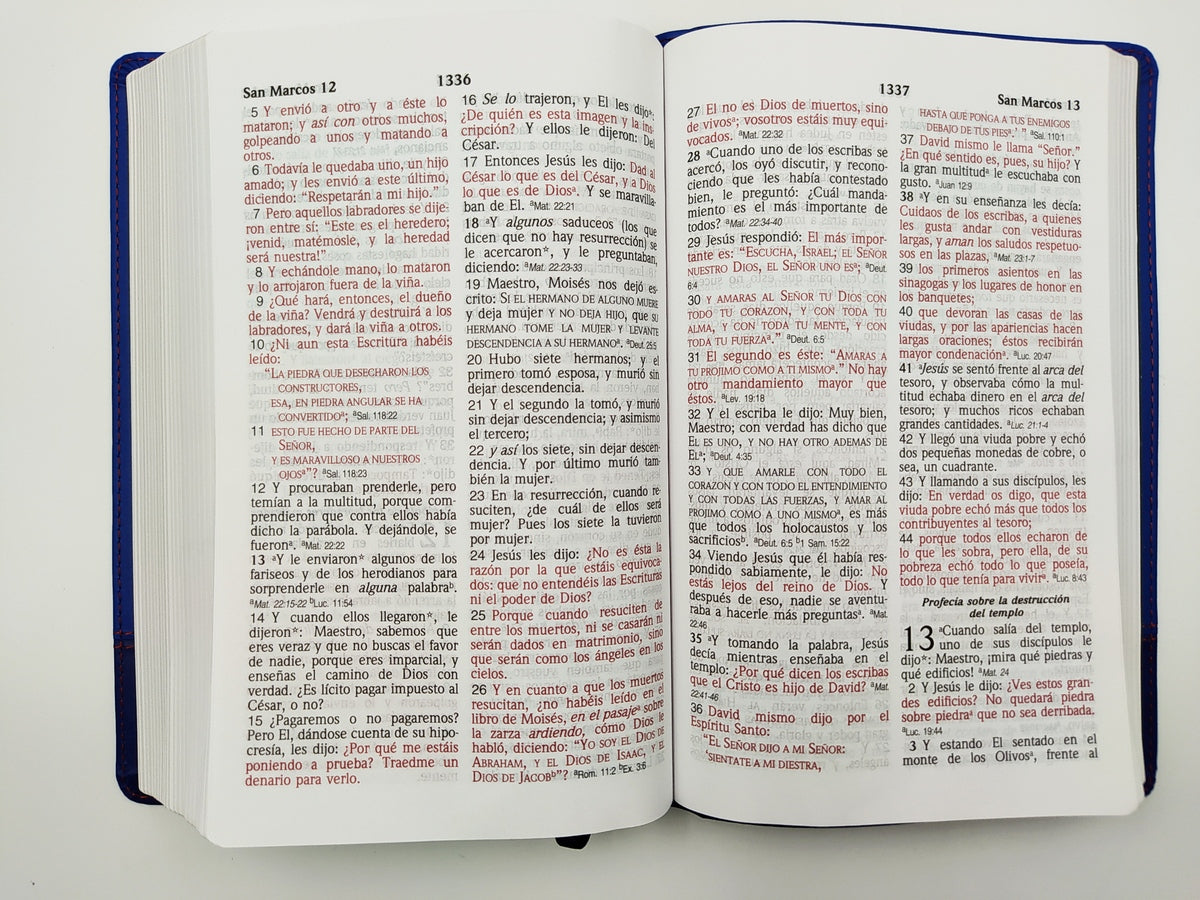 San Marcos 12
1336
5 Y envió a otro y a éste lo
mataron; y así con otros muchos,
golpeando a unos y matando a
otros.
6 Todavía le quedaba uno, un hijo
amado; y les envió a este último,
diciendo: “Respetarán a mi hijo.”
7 Pero aquellos labradores se dije-
ron entre sí: “Este es el heredero;
¡venid, matémosle, y la heredad
será nuestra!”
8 Y echándole mano, lo mataron
y lo arrojaron fuera de la viña.
9 ¿Qué hará, entonces, el dueño
de la viña? Vendrá y destruirá a los
labradores, y dará la viña a otros.
10 ¿Ni aun esta Escritura habéis
leído:
“LA PIEDRA QUE DESECHARON LOS
CONSTRUCTORES,
ESA, EN PIEDRA ANGULAR SE HA
CONVERTIDOª; ªSal. 118:22
11 ESTO FUE HECHO DE PARTE DEL
SEÑOR,
Y ES MARAVILLOSO A NUESTROS
OJOSª”? ªSal. 118:23
12 Y procuraban prenderle, pero
temían a la multitud, porque com-
prendieron que contra ellos había
dicho la parábola. Y dejándole, se
fueronª. ªMat. 22:22
13 ªY le enviaron* algunos de los
fariseos y de los herodianos para
sorprenderle en alguna palabraᵇ.
ªMat. 22:15-22 ᵇLuc. 11:54
14 Y cuando ellos llegaron*, le
dijeron*: Maestro, sabemos que
eres veraz y que no buscas el favor
de nadie, porque eres imparcial, y
enseñas el camino de Dios con
verdad. ¿Es lícito pagar impuesto al
César, o no?
15 ¿Pagaremos o no pagaremos?
Pero El, dándose cuenta de su hipo-
cresía, les dijo: ¿Por qué me estáis
poniendo a prueba? Traedme un
denario para verlo.
16 Se lo trajeron, y El les dijo*:
¿De quién es esta imagen y la ins-
cripción? Y ellos le dijeron: Del
César.
17 Entonces Jesús les dijo: Dad al
César lo que es del César, y a Dios
lo que es de Diosª. Y se maravilla-
ban de El. ªMat. 22:21
18 ªY algunos saduceos (los que
dicen que no hay resurrección) se
le acercaron*, y le preguntaban,
diciendo: ªMat. 22:23-33
19 Maestro, Moisés nos dejó es-
crito: SI EL HERMANO DE ALGUNO MUERE
y deja mujer Y NO DEJA HIJO, que SU
HERMANO TOME LA MUJER Y LEVANTE
DESCENDENCIA A SU HERMANOª. ªDeut. 25:5
20 Hubo siete hermanos; y el
primero tomó esposa, y murió sin
dejar descendencia.
21 Y el segundo la tomó, y murió
sin dejar descendencia; y asimismo
el tercero;
22 y así los siete, sin dejar descen-
dencia. Y por último murió tam-
bién la mujer.
23 En la resurrección, cuando re-
suciten, ¿de cuál de ellos será
mujer? Pues los siete la tuvieron
por mujer.
24 Jesús les dijo: ¿No es ésta la
razón por la que estáis equivoca-
dos: que no entendéis las Escrituras
ni el poder de Dios?
25 Porque cuando resuciten de
entre los muertos, ni se casarán ni
serán dados en matrimonio, sino
que serán como los ángeles en los
cielos.
26 Y en cuanto a que los muertos
resucitan, ¿no habéis leído en el
libro de Moisés, en el pasajeª sobre
la zarza ardiendo, cómo Dios le
habló, diciendo: “YO SOY EL DIOS DE
ABRAHAM, Y EL DIOS DE ISAAC, Y EL
DIOS DE JACOBᵇ”? ªRom. 11:2 ᵇEx. 3:6
1337
San Marcos 13
27 El no es Dios de muertos, sino
de vivosª; vosotros estáis muy equi-
vocados. ªMat. 22:32
28 ªCuando uno de los escribas se
acercó, los oyó discutir, y recono-
ciendo que les había contestado
bien, le preguntó: ¿Cuál manda-
miento es el más importante de
todos? ªMat. 22:34-40
29 Jesús respondió: El más impor-
tante es: “ESCUCHA, ISRAEL; EL SEÑOR
NUESTRO DIOS, EL SEÑOR UNO ESª; ªDeut.
6:4
30 Y AMARAS AL SEÑOR TU DIOS CON
TODO TU CORAZON, Y CON TODA TU
ALMA, Y CON TODA TU MENTE, Y CON
TODA TU FUERZAª.” ªDeut. 6:5
31 El segundo es éste: “AMARAS A
TU PROJIMO COMO A TI MISMOª.” No hay
otro mandamiento mayor que
éstos. ªLev. 19:18
32 Y el escriba le dijo: Muy bien,
Maestro; con verdad has dicho que
EL ES UNO, Y NO HAY OTRO ADEMAS DE
ELª; ªDeut. 4:35
33 Y QUE AMARLE CON TODO EL
CORAZON Y CON TODO EL ENTENDIMIENTO
Y CON TODAS LAS FUERZAS, Y AMAR AL
PROJIMO COMO A UNO MISMOª, es más
que todos los holocaustos y los
sacrificiosᵇ. ªDeut. 6:5 ᵇ1 Sam. 15:22
34 Viendo Jesús que él había res-
pondido sabiamente, le dijo: No
estás lejos del reino de Dios. Y
después de eso, nadie se aventu-
raba a hacerle más preguntasª. ªMat.
22:46
35 ªY tomando la palabra, Jesús
decía mientras enseñaba en el
templo: ¿Por qué dicen los escribas
que el Cristo es hijo de David? ªMat.
22:41-46
36 David mismo dijo por el
Espíritu Santo:
“EL SEÑOR DIJO A MI SEÑOR:
‘SIENTATE A MI DIESTRA,
HASTA QUE PONGA A TUS ENEMIGOS
DEBAJO DE TUS PIESª.’ ” ªSal. 110:1
37 David mismo le llama “Señor.”
¿En qué sentido es, pues, su hijo? Y
la gran multitudª le escuchaba con
gusto. ªJuan 12:9
38 ªY en su enseñanza les decía:
Cuidaos de los escribas, a quienes
les gusta andar con vestiduras
largas, y aman los saludos respetuo-
sos en las plazas, ªMat. 23:1-7
39 los primeros asientos en las
sinagogas y los lugares de honor en
los banquetes;
40 que devoran las casas de las
viudas, y por las apariencias hacen
largas oraciones; éstos recibirán
mayor condenaciónª. ªLuc. 20:47
41 ªJesús se sentó frente al arca del
tesoro, y observaba cómo la mul-
titud echaba dinero en el arca del
tesoro; y muchos ricos echaban
grandes cantidades. ªLuc. 21:1-4
42 Y llegó una viuda pobre y echó
dos pequeñas monedas de cobre, o
sea, un cuadrante.
43 Y llamando a sus discípulos, les
dijo: En verdad os digo, que esta
viuda pobre echó más que todos los
contribuyentes al tesoro;
44 porque todos ellos echaron de
lo que les sobra, pero ella, de su
pobreza echó todo lo que poseía,
todo lo que tenía para vivirª. ªLuc. 8:43
Profecía sobre la destrucción
del templo
13 ªCuando salía del templo,
uno de sus discípulos le
dijo*: Maestro, ¡mira qué piedras y
qué edificios! ªMat. 24
2 Y Jesús le dijo: ¿Ves estos gran-
des edificios? No quedará piedra
sobre piedraª que no sea derribada.
ªLuc. 19:44
3 Y estando El sentado en el
monte de los Olivosª, frente al